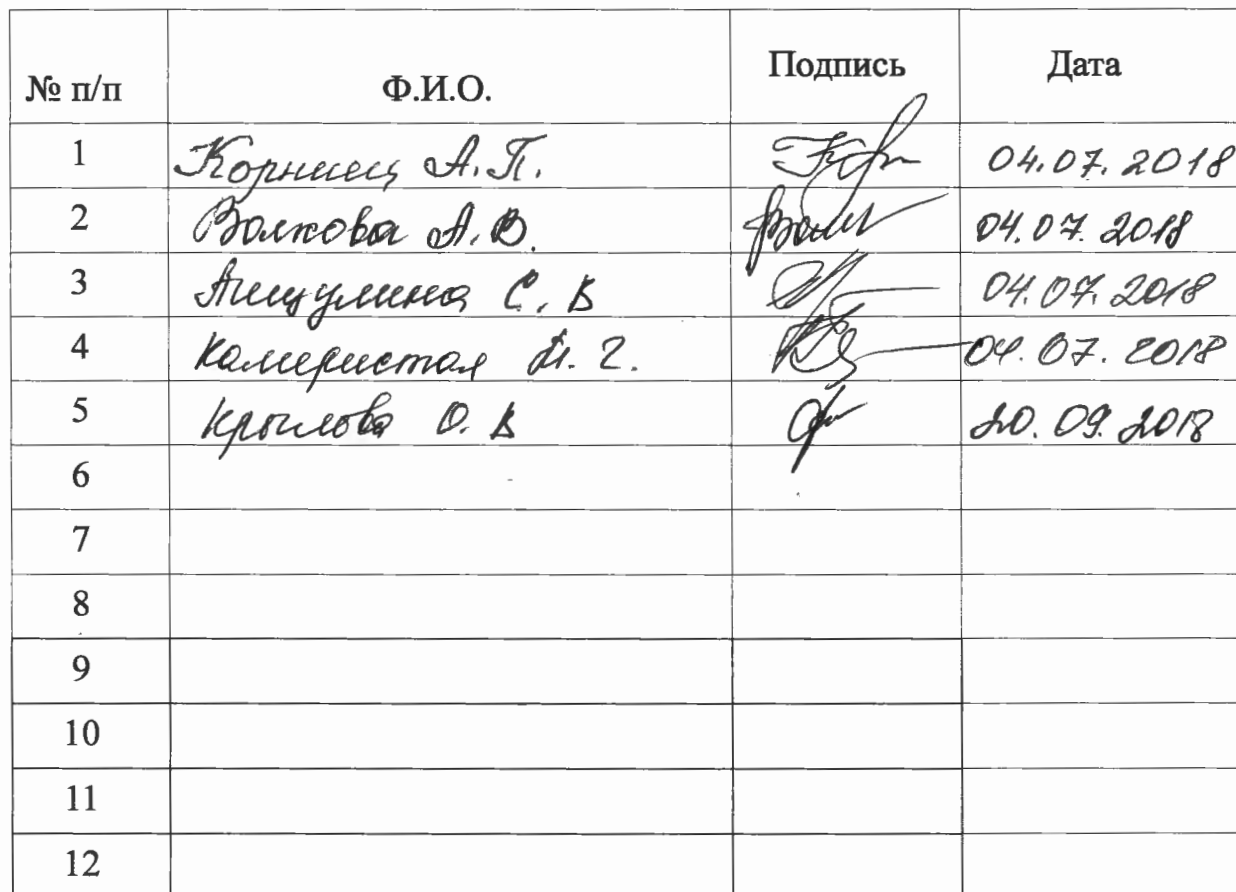 № п/п Ф.И.О. Подпись Дата
1 Корниец А.П. 04.07.2018
2 Волкова А.В. 04.07.2018
3 С. В 04.07.2018
4 Камеристая 04.07.2018
5 Крылова О. В 20.09.2018
6
7
8
9
10
11
12